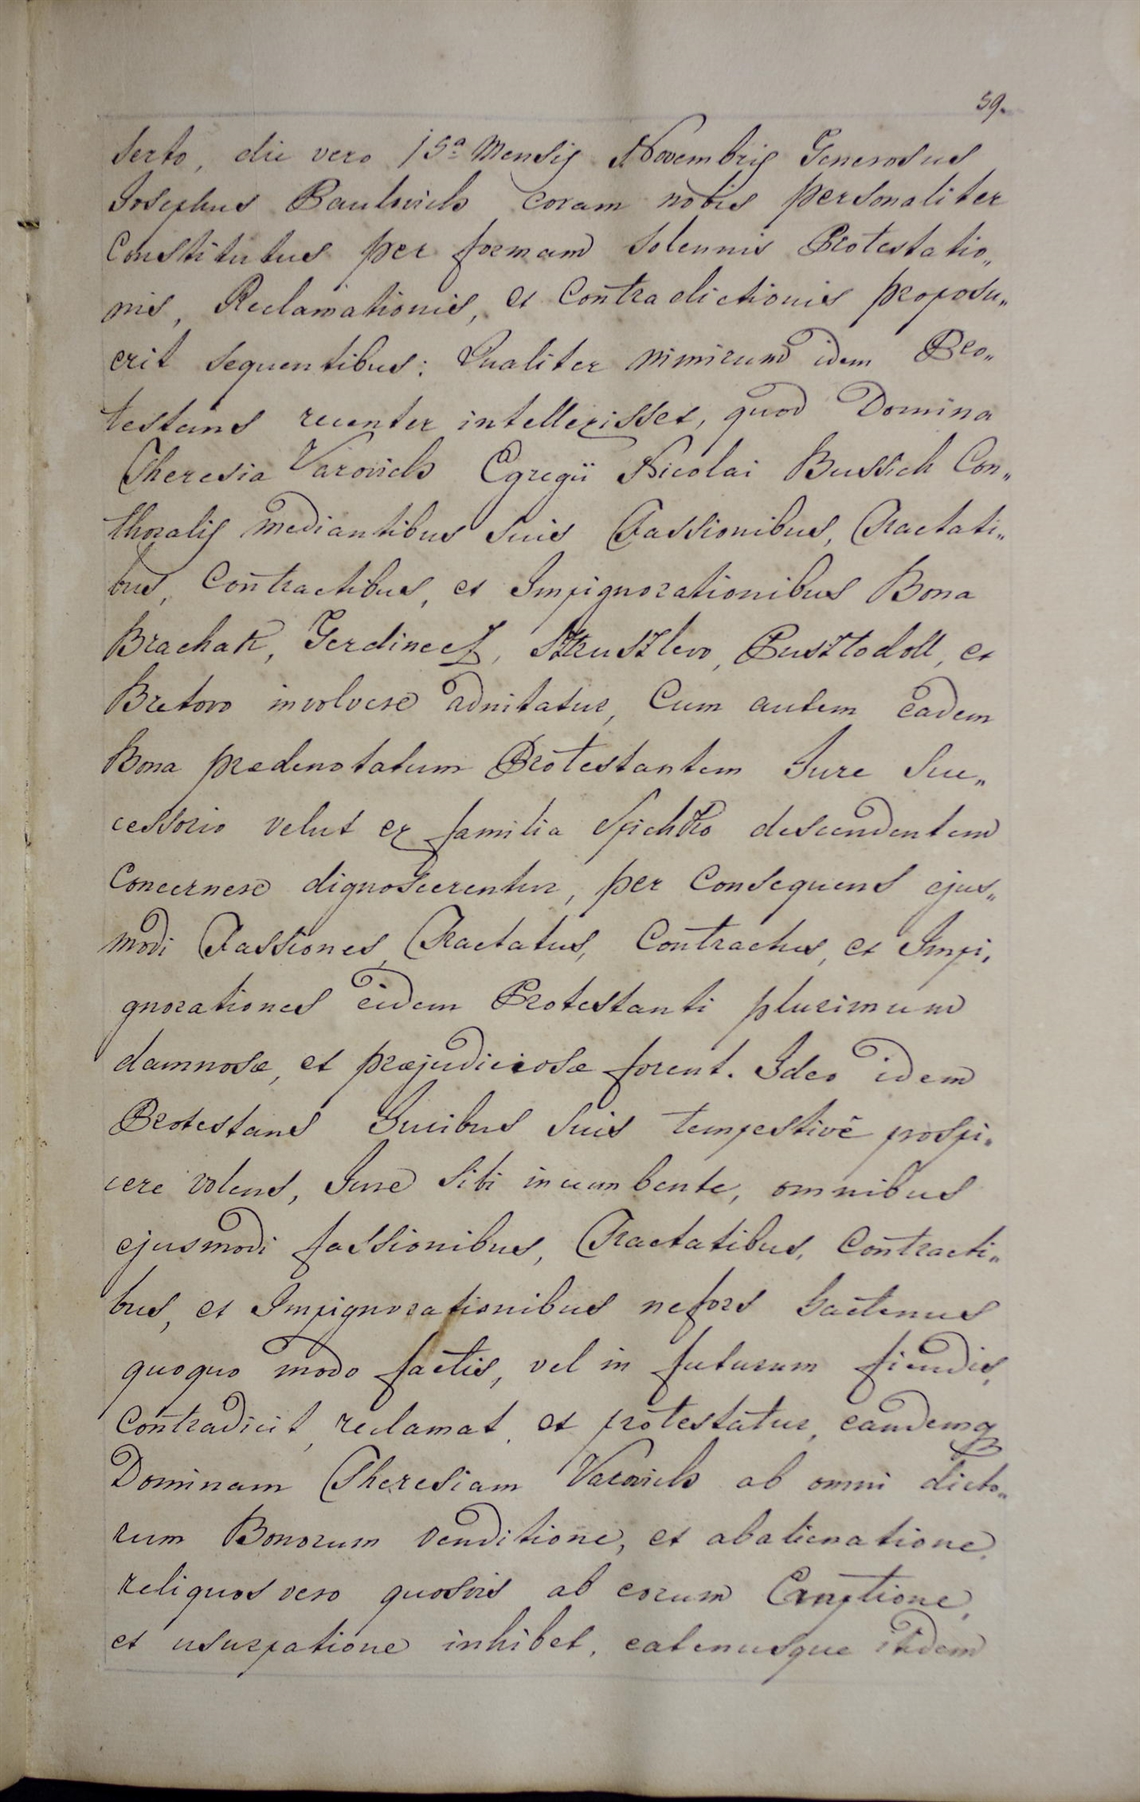 59.
serto, die vero 15a Mensis Novembris Generosus
Josephus Paulovich coram nobis personaliter
Constitutus per formam Solennis Protestatio„
nis, Reclamationis, et Contradictionis proposu„
erit sequentibus: Qualiter nimirum idem Pro„
testans recenter intellexisset, quod Domina
Theresia Varovich Egregii Nicolai Bussich Con„
thoralis mediantibus suis Fassionibus, Tractati„
bus, Contractibus, et Impignorationibus Bona
Brachak, Gerdinecz, Szkuszlevo, Pusztodoll, et
Bretovo involvere adnitatur, Cum autem eadem
Bona prædenotatum Protestantem Jure Suc„
cessorio velut ex familia Spichko descendentem
Concernere dignoscerentur, per Consequens ejus„
modi Fassiones, Tractatus, Contractus, et Impi„
gnorationes eidem Protestanti plurimum
damnosæ, et præjudiciosæ forent. Ideo idem
Protestans Juribus suis tempestivè prospi„
cere volens, Jure Sibi incumbente, omnibus
ejusmodi fassionibus, Tractatibus, Contracti„
bus, et Impignorationibus nefors hactenus
quoquo modo factis, vel in futurum fiendis,
Contradicit, reclamat, et protestatur, eandemq
Dominam Theresiam Varovich ab omni dicto„
rum Bonorum venditione, et abalienatione,
reliquos vero quosvis ab eorum Emptione,
et usurpatione inhibet, eatenusque itidem